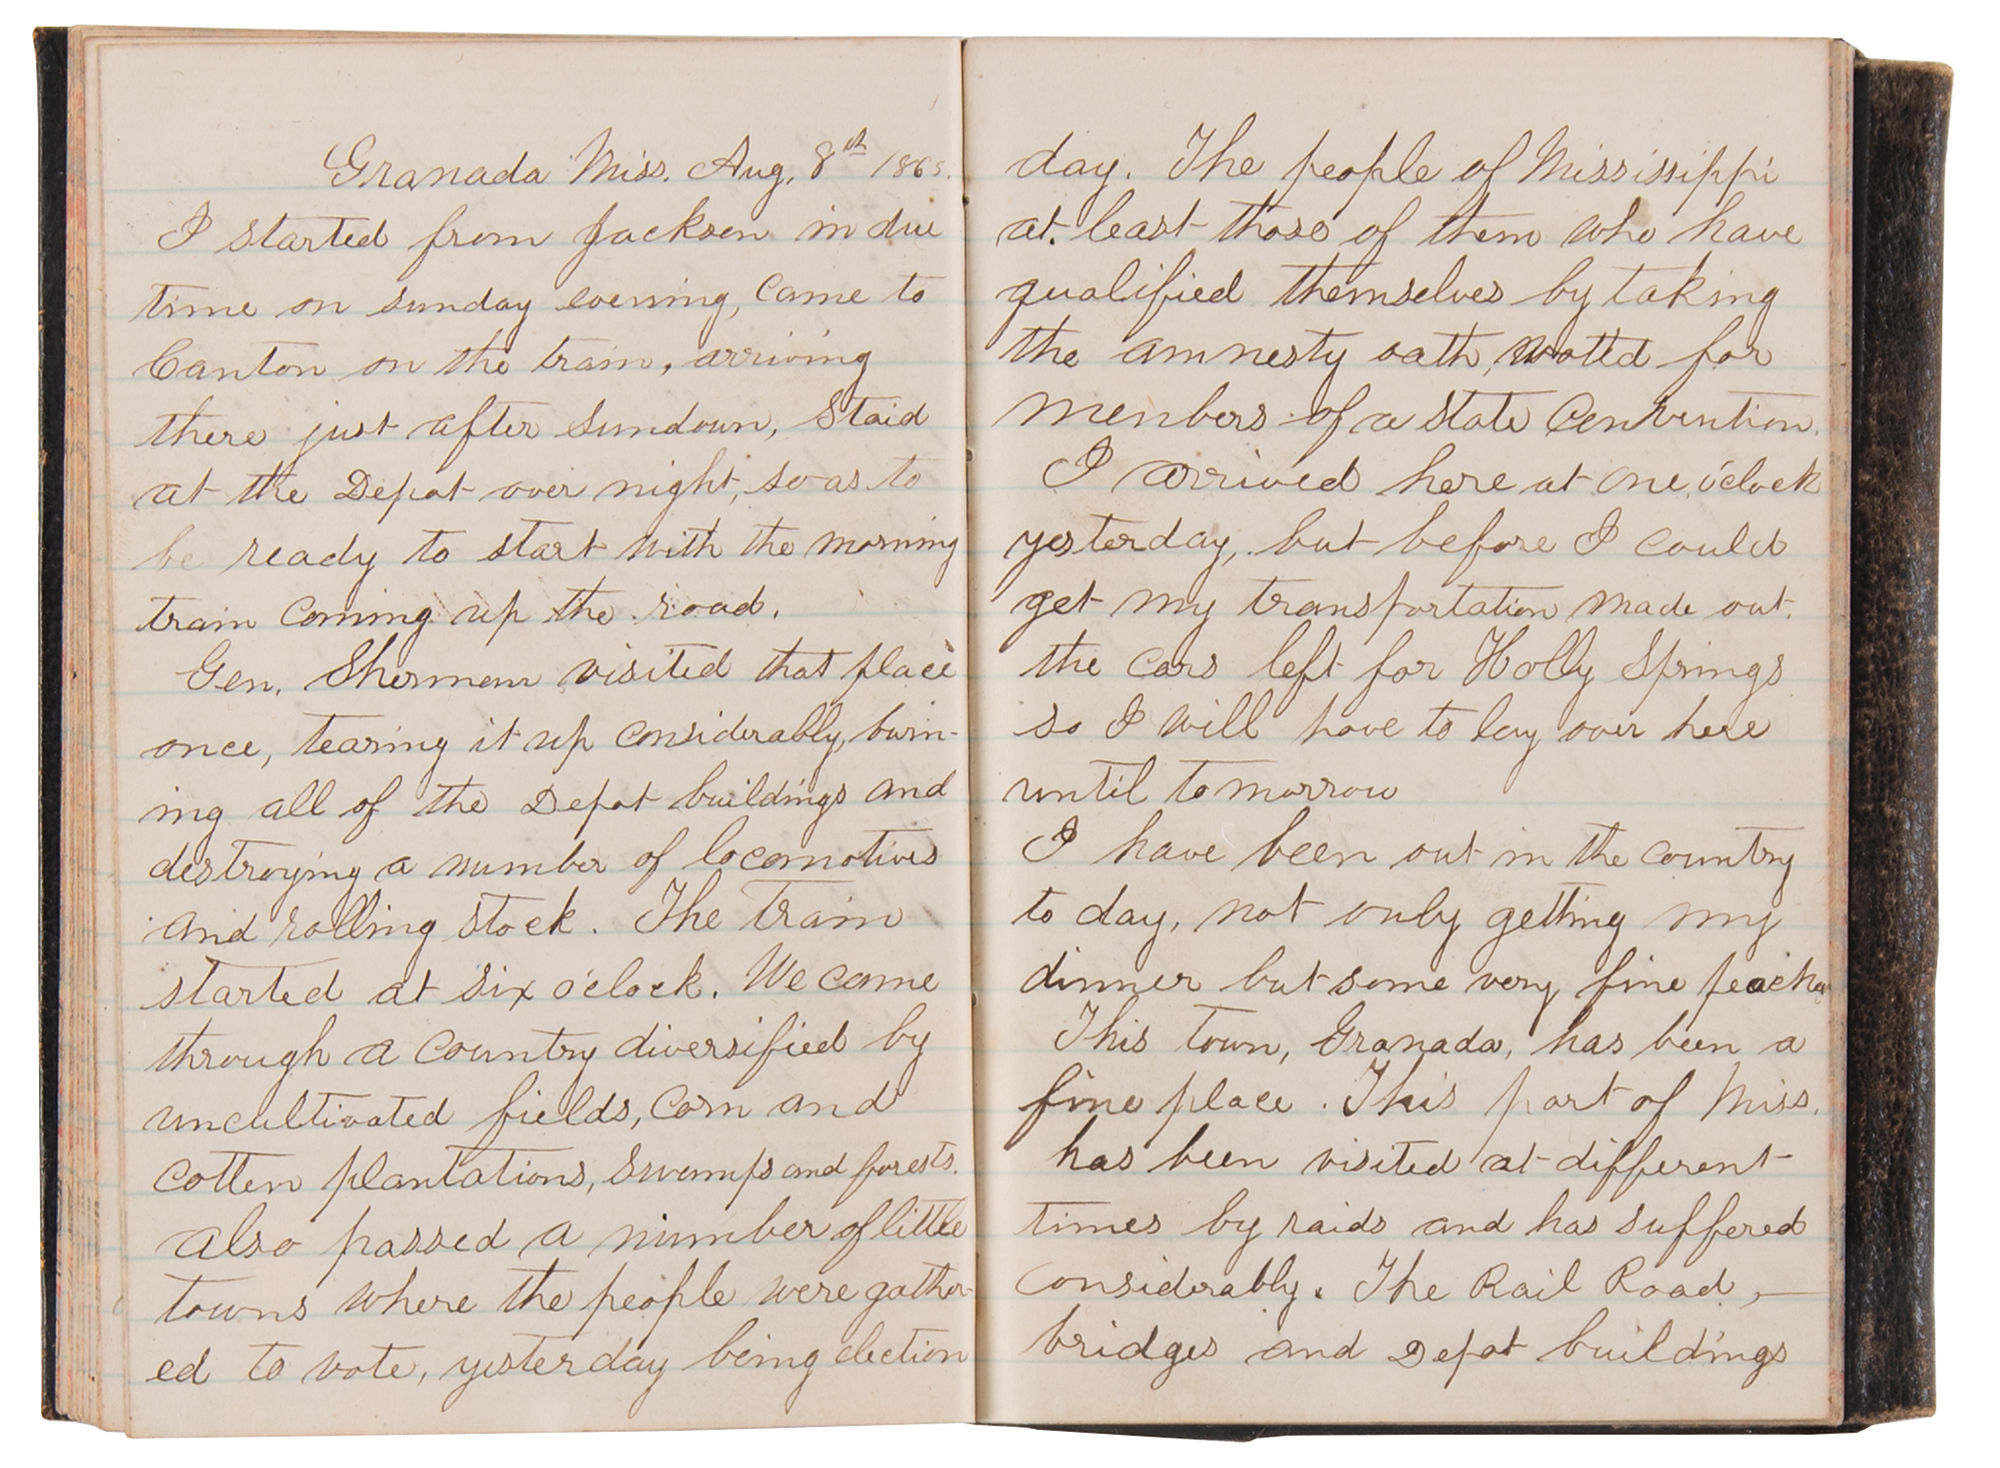 Granada Miss. Aug. 8th 1865.
I started from Jackson in due
time on sunday evening, Came to
Canton on the train, arriving
there just after sundown, Staid
at the Depot over night, so as to
be ready to start with the morning
train Coming up the road.
Gen. Sherman visited that place
once, tearing it up Considerably, burn-
ing all of the Depot buildings and
destroying a number of locomotives
and rolling stock. The train
started at six o'clock. We came
through a Country diversified by
uncultivated fields, Corn and
Cotten plantations, Swamps and forests.
also passed a number of little
towns where the people were gather-
ed to vote, yesterday being election
day. The people of Mississippi
at least those of them who have
qualified themselves by taking
the amnesty oath, votted for
menbers of a state Convention.
I arrived here at one o'clock
yesterday, but before I could
get my transportation made out.
the Cars left for Holly Springs
so I will have to lay over here
until tomorrow
I have been out in the country
to day, not only getting my
dinner but some very fine peaches
This town, Granada, has been a
fine place. This part of Miss.
has been visited at different
times by raids and has suffered
Considerably. The Rail Road, —
bridges and Depot buildings